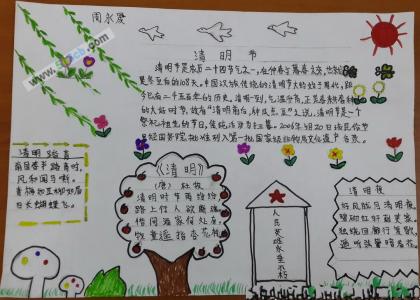 周永爱
清明节
清明节是农历二十四节气之一，在仲春与暮春之交，也就
是冬至后的108天。中国汉族传统的清明节大约始于周代，距
今已有二千五百年的历史。清明一到，气温升高，正是春耕春种
的大好时节，故有"清明前后，种瓜点豆"之说。清明节是一个
祭祀祖先的节日，传统活动为扫墓。2006年5月20日，该民俗节
日经国务院批准列入第一批国家级非物质文化遗产名录。
清明
南园春半踏青时，
风和闻马嘶。
青梅如豆柳如眉
日长蝴蝶飞。
《清明》
(唐) 杜牧
清明时节雨纷纷
路上行人欲断魂
借问酒家何处有
牧童遥指杏花村
人民英雄永垂不朽
清明夜
好风胧月清明夜，
碧砌红轩刺史家。
独绕回廊行复歇，
遥听弦管暗看花。